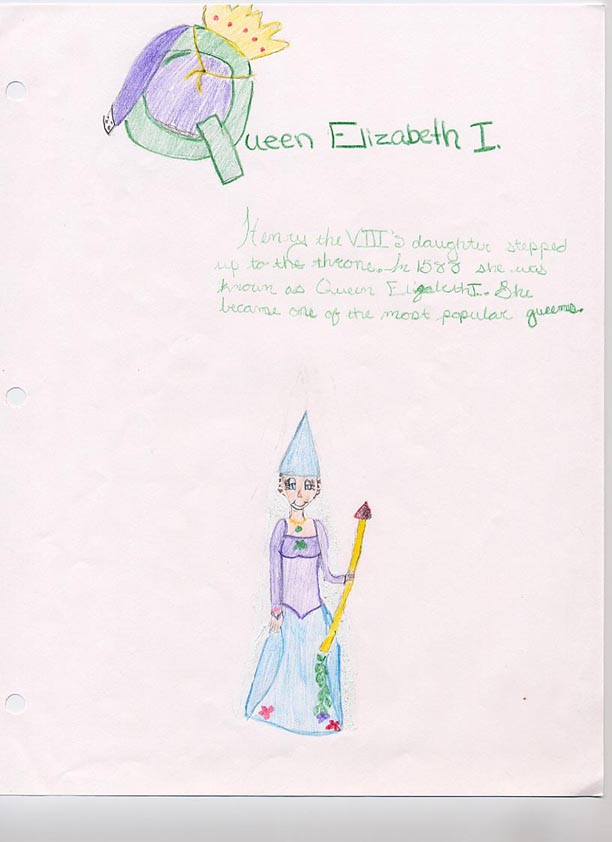 Queen Elizabeth I.
Henry the VIII's daughter stepped
up to the throne. In 1588 she was
known as Queen Elizabeth I. She
became one of the most popular queens.